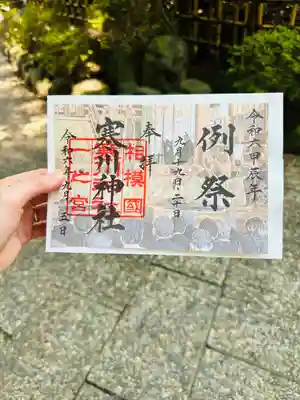 令和六甲辰年
例祭
九月十九日・二十日
奉拝
相模國
寒川神社
一之宮
令和六年九月十五日